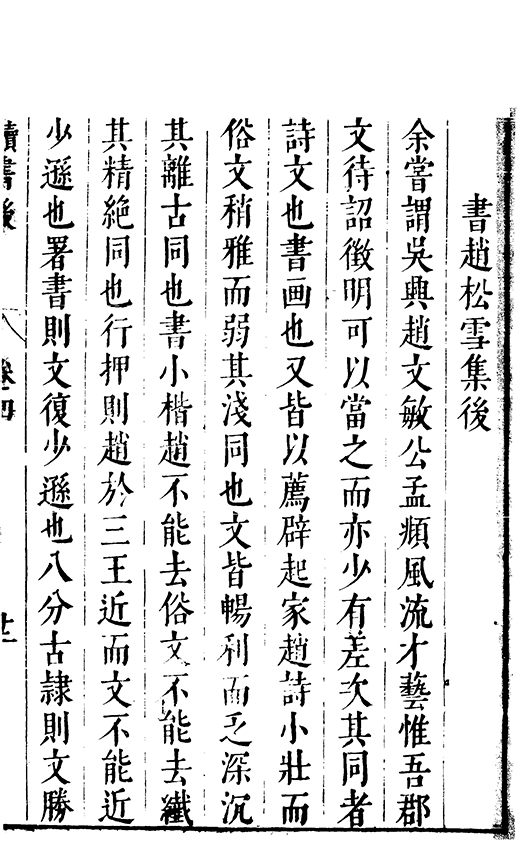 書趙松雪集後
余嘗謂吳興趙文敏公孟頫風流才藝惟吾郡
文待詔徵明可以當之而亦少有差次其同者
詩文也書画也又皆以薦辟起家趙詩小壯而
俗文稍雅而弱其淺同也文皆暢利而乏深沉
其離古同也書小楷趙不能去俗文不能去纖
其精絶同也行押則趙於三王近而文不能近
少遜也署書則文復少遜也八分古隷則文勝
讀書後 卷四 十二